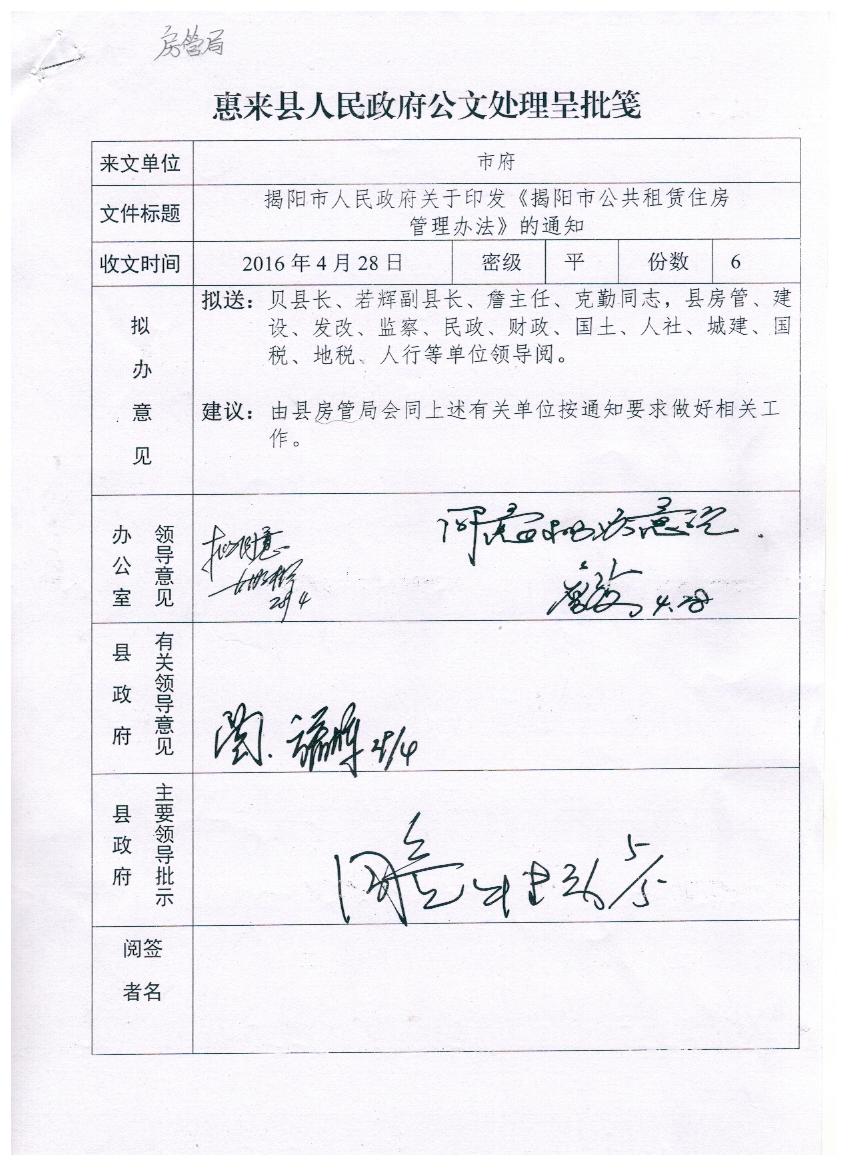 房管局
惠来县人民政府公文处理呈批笺
来文单位 市府
文件标题 揭阳市人民政府关于印发《揭阳市公共租赁住房
管理办法》的通知
收文时间 2016年4月28日 密级 平 份数 6
拟办意见
拟送：贝县长、若辉副县长、詹主任、克勤同志，县房管、建
设、发改、监察、民政、财政、国土、人社、城建、国
税、地税、人行等单位领导阅。
建议：由县房管局会同上述有关单位按通知要求做好相关工
作。
办公室 领导意见
拟同意
28/4
4.28
县政府 有关领导意见
阅. 28/4
县政府 主要领导批示
同意
5/5
阅签
者名